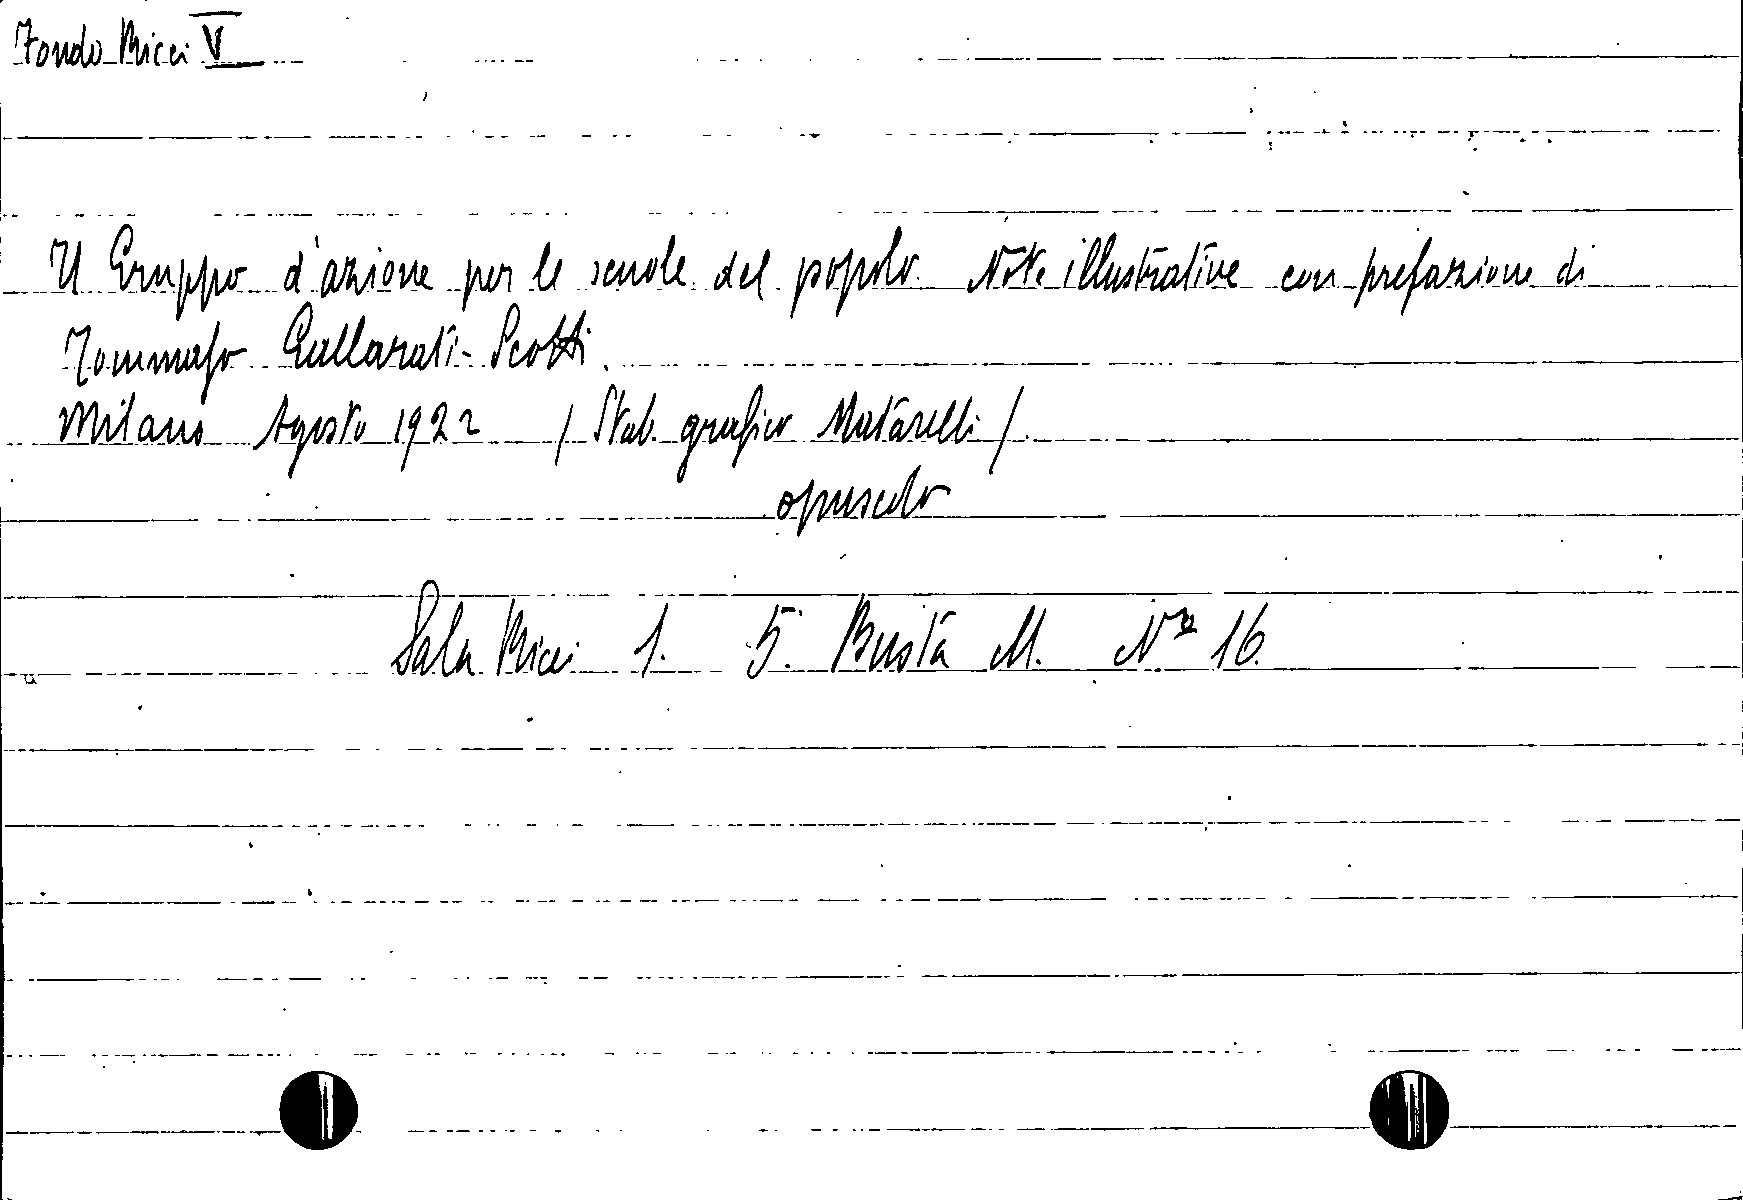 Fondo Ricci V
Il Gruppo d'azione per le scuole del popolo. Note illustrative con prefazione di
Tommaso Gallarati-Scotti.
Milano Agosto 1922 / Stab. grafico Matarelli /.
opuscolo
Sala Ricci 1. 5. Busta M. Nº 16.